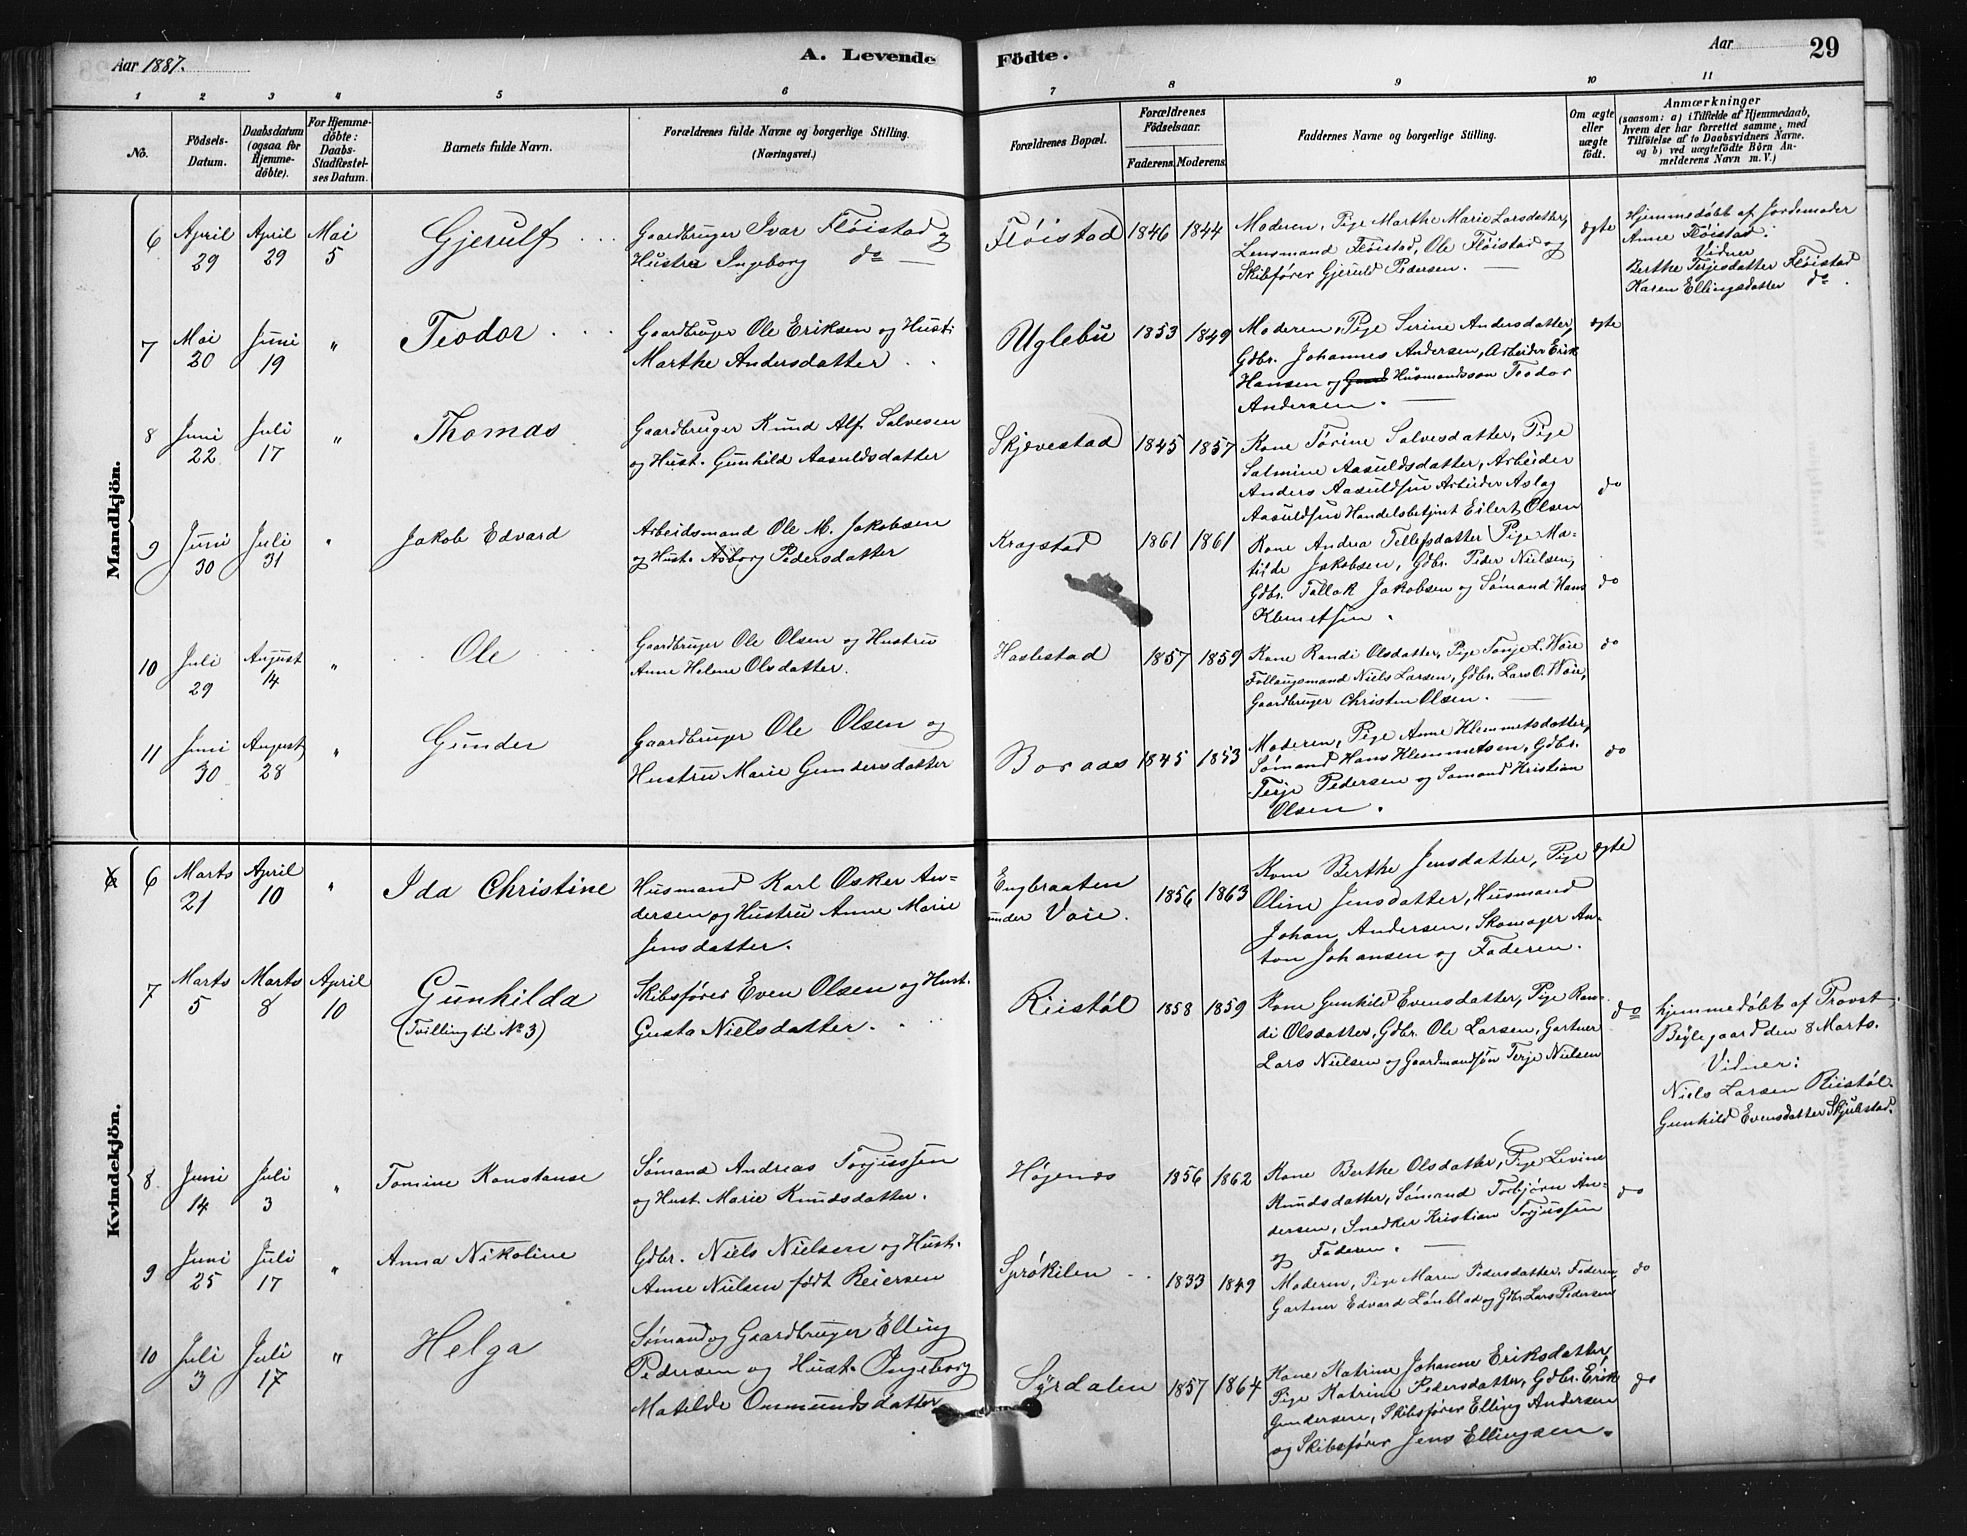 Aar 1887.
A. Levende Födte.
Aar
29
1 2 3 4 5 6 7 8 9 10 11
No.
Födsels-
Datum.
Daabsdatum
(ogsaa for
Hjemme-
döbte).
For Hjemme-
döbte:
Daabs-
Stadfæstel-
ses Datum.
Barnets fulde Navn.
Forældrenes fulde Navne og borgerlige Stilling.
(Næringsvei.)
Forældrenes Bopæl.
Forældrenes
Födselsaar.
Faderens. Moderens.
Faddernes Navne og borgerlige Stilling.
Om ægte
eller
uægte
født.
Anmærkninger
(saasom: a) i Tilfælde af Hjemmedaab,
hvem der har forrettet samme, med
Tilföielse af to Daabsvidners Navne.
og b) ved uægtefödte Börn An-
melderens Navn m. V.)
Mandkjön.
6
April
29
April
29
Mai
5
Gjerulf
Gaardbruger Ivar Fløistad og
Hustru Ingeborg do
Fløistad
1846 1844
Moderen, Pige Marthe Marie Larsdatter,
Lensmand Fløistad, Ole Fløistad og
Skibfører Gjeruld Pedersen.
ægte
Hjemmedøbt af Jordemoder
Anne Fløistad.
Vidner
Berthe Terjesdatter Fløistad
Karen Ellingsdatter do.
7
Mai
20
Juni
19
"
Teodor
Gaardbruger Ole Eriksen og Hust:
Marthe Andersdatter
Uglebu
1853 1849
Moderen, Pige Serine Andersdatter,
Gdbr. Johannes Andersen, Arbeider Erik
Hansen og Gaard Husmandssøn Teodor
Andersen.
ægte
8
Juni
22
Juli
17
"
Thomas
Gaardbruger Knud Alf. Salvesen
og Hust. Gunhild Aasuldsdatter
Skjævestad
1845 1857
Kone Tørine Salvesdatter, Pige
Salmine Aasuldsdatter, Arbeider
Anders Aasuldsen Arbeider Aslag
Aasuldsen Handelsbetjent Eilert Olsen
do
9
Juni
30
Juli
31
"
Jakob Edvard
Arbeidsmand Ole M. Jakobsen
og Hust. Asborg Pedersdatter
Kragstad
1861 1861
Kone Andrea Tellefsdatter Pige Ma-
tilde Jakobsen, Gdbr. Peder Nielsen,
Gdbr. Tallak Jakobsen og Sømand Hans
Klemetsen.
do
10
Juli
29
August
14
"
Ole
Gaardbruger Ole Olsen og Hustru
Anne Helene Olsdatter.
Haslestad
1857 1859
Kone Randi Olsdatter, Pige Tonje L. Woie
Follaugsmand Niels Larsen, Gdbr. Lars O. Woie,
Gaardbruger Christen Olsen.
do
11
Juni
30
August
28
"
Gunder
Gaardbruger Ole Olsen og
Hustru Marie Gundersdatter
Boraas
1845 1853
Moderen, Pige Anne Klemmetsdatter,
Sømand Hans Klemmetsen, Gdbr.
Terje Pedersen og Sømand Kristian
Olsen.
do
Kvindekjön.
6
6
Marts
21
April
10
"
Ida Christine
Husmand Karl Osker An-
dersen og Hustru Anne Marie
Jensdatter.
Engbraaten
under Voie.
1856 1863
Kone Berthe Jensdatter, Pige
Oline Jensdatter, Husmand
Johan Andersen, Skomager An-
ton Johansen og Faderen.
ægte
7
Marts
5
Marts
8
April
10
Gunhilda
(Tvilling til No 3)
Skibsfører Even Olsen og Hust.
Gusta Nielsdatter.
Riistøl
1858 1859
Kone Gunhild Evensdatter, Pige Ran-
di Olsdatter, Gdbr. Ole Larsen, Gartner
Lars Nielsen og Gaardmandsøn Terje Nielsen
do
hjemmedøbt af Provst
Bøilegaard den 8 Marts.
Vidner:
Niels Larsen Riistøl.
Gunhild Evensdatter Skjulestad.
8
Juni
14
Juli
3
"
Tomine Konstanse
Sømand Andreas Torjussen
og Hust. Marie Knudsdatter.
Høgenes
1856 1862
Kone Berthe Olsdatter, Pige Levine
Knudsdatter, Sømand Torbjørn An-
dersen, Snedker Kristian Torjussen
og Faderen.
do
9
Juni
25
Juli
17
"
Anna Nikoline
Gdbr. Niels Nielsen og Hust.
Anne Nielsen født Reiersen
Sprøkilen
1833 1849
Moderen, Pige Maren Pedersdatter, Faderen,
Gartner Edvard Lønblad og Gdbr. Lars Pedersen
do
10
Juli
3
Juli
17
"
Helga
Sømand og Gaardbruger Elling
Pedersen og Hust. Ingeborg
Matilde Ommundsdatter
Syrdalen
1857 1864
Kone Katrine Johanne Eriksdatter,
Pige Katrine Pedersdatter, Gdbr. Erik
Gundersen, Skibsfører Elling Andersen
og Skibsfører Jens Ellingsen.
do